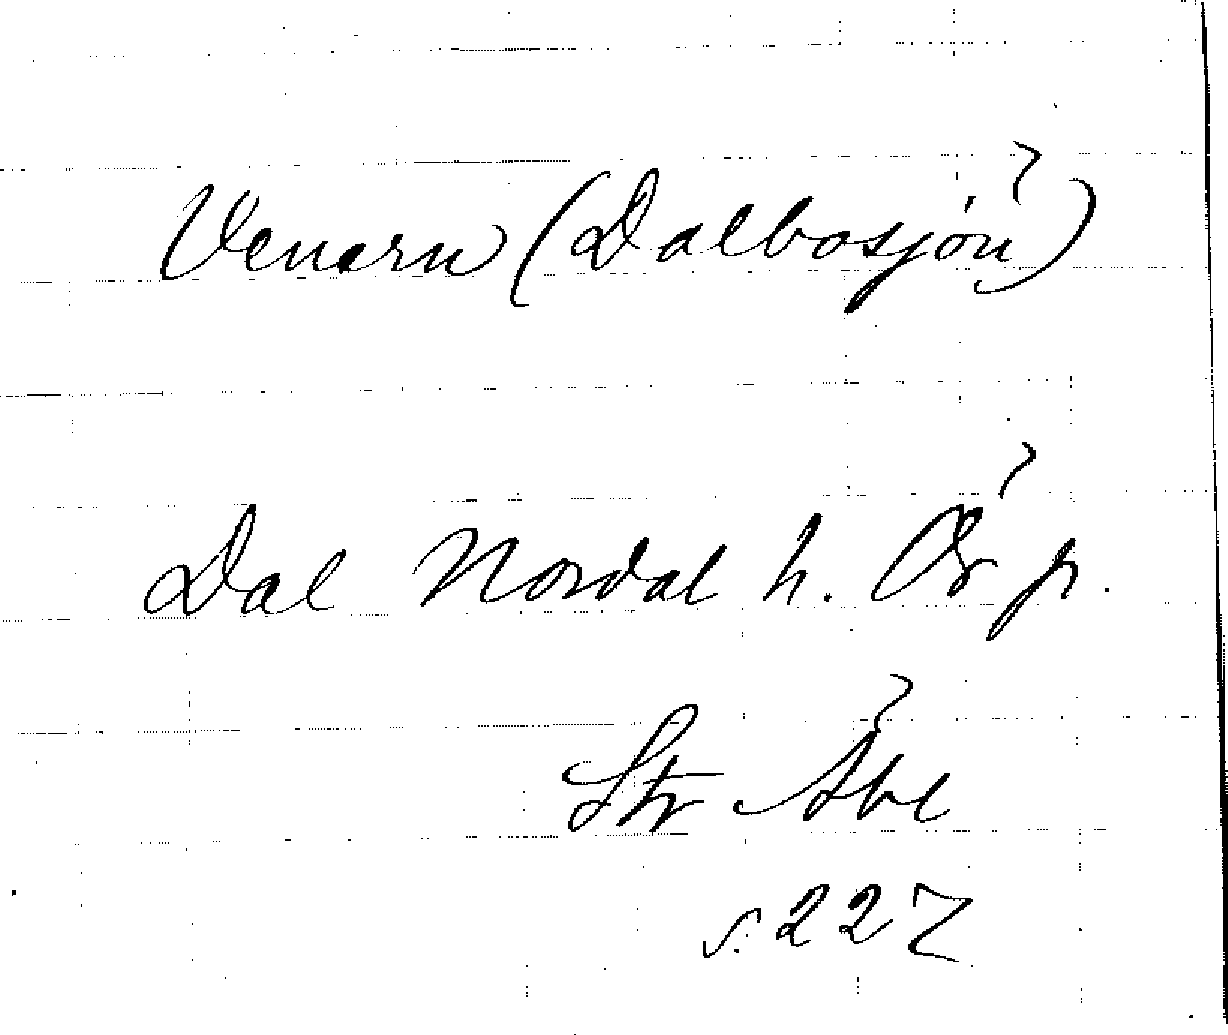 Venern (Dalbosjön)
Dal Nordal h. Ör p.
Str
s. 227